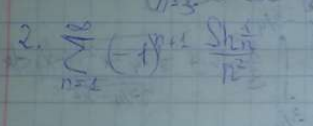 2. ∑_{n=1}^{∞} (-1)^{n+1} \frac{Sh \frac{1}{n}}{n^2}